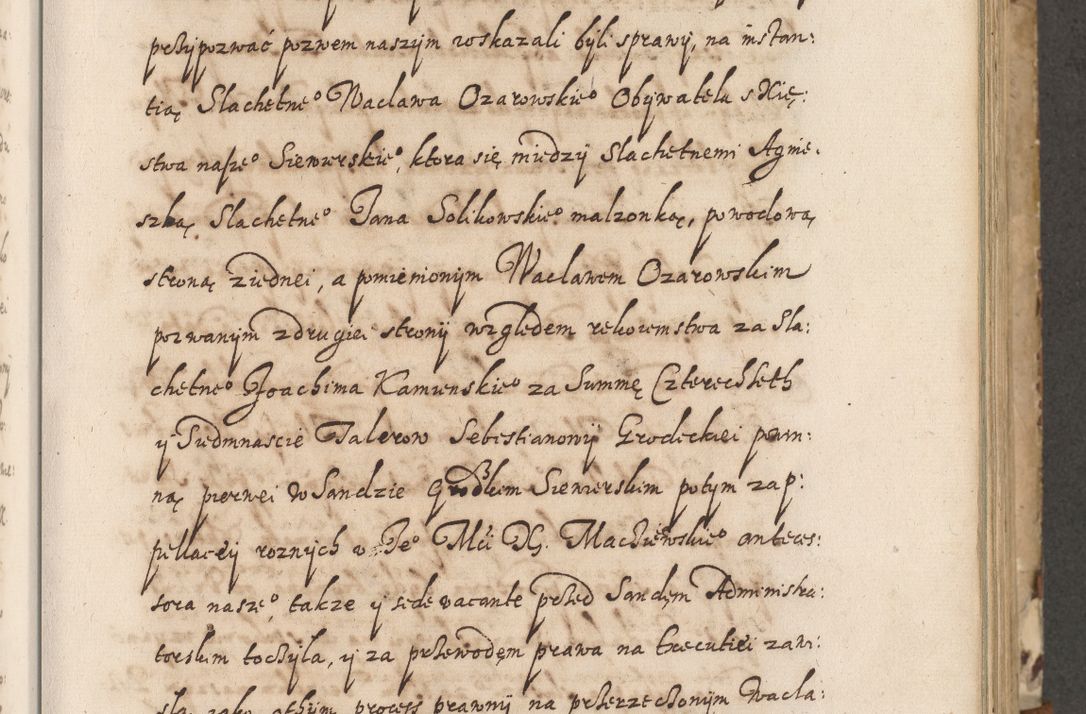 przypozwać pozwem naszym roskazali byli sprawy, na instan:
tią Slachetne° Wacława Ozarowskie° Obywatela s Xię:
stwa nasze° Siewierskie°, ktora się miedzy Slachetnemi Agnie:
szką Slachetne° Jana Solikowskie° malzonką, powodową
stroną ziednei, a pomienionym Wacławem Ozarowskim
pozwanym zdrugiei strony względem rekoiemstwa za Sla:
chetne° Joachima Kamienskie° za Summę Czterechseth
y Siedmnascie Talerow Sebestianowy Grodeckiei powin:
ną pierwei w Sandzie Grodzkim Siewierskim potym zap:
pellacÿi roznych v Je° Mći X. Maciiewskie° anteces:
sora nasze°, takze y sede vacante przed Sandem Administra:
torskim toczyla, y za przewodem prawa na Executiei zawi:
sla, iako process prawny na przerzeczonym Wacla: